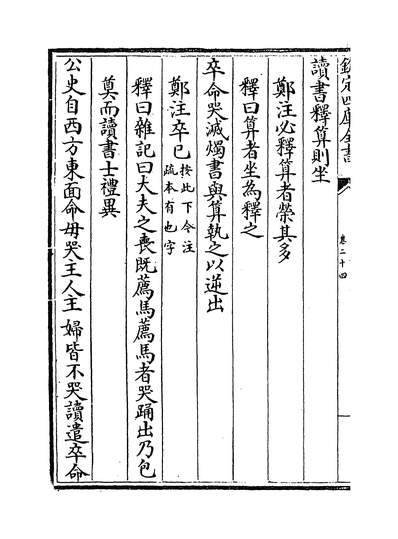 欽定四庫全書
卷二十四
讀書釋算則坐
鄭注必釋算者榮其多
釋曰算者坐為釋之
卒命哭滅燭書與算執之以逆出
鄭注卒已按此下今注疏本有也字
釋曰雜記曰大夫之喪既薦馬薦馬者哭踊出乃包
奠而讀書士禮異
公史自西方東面命毋哭主人主婦皆不哭讀遣卒命